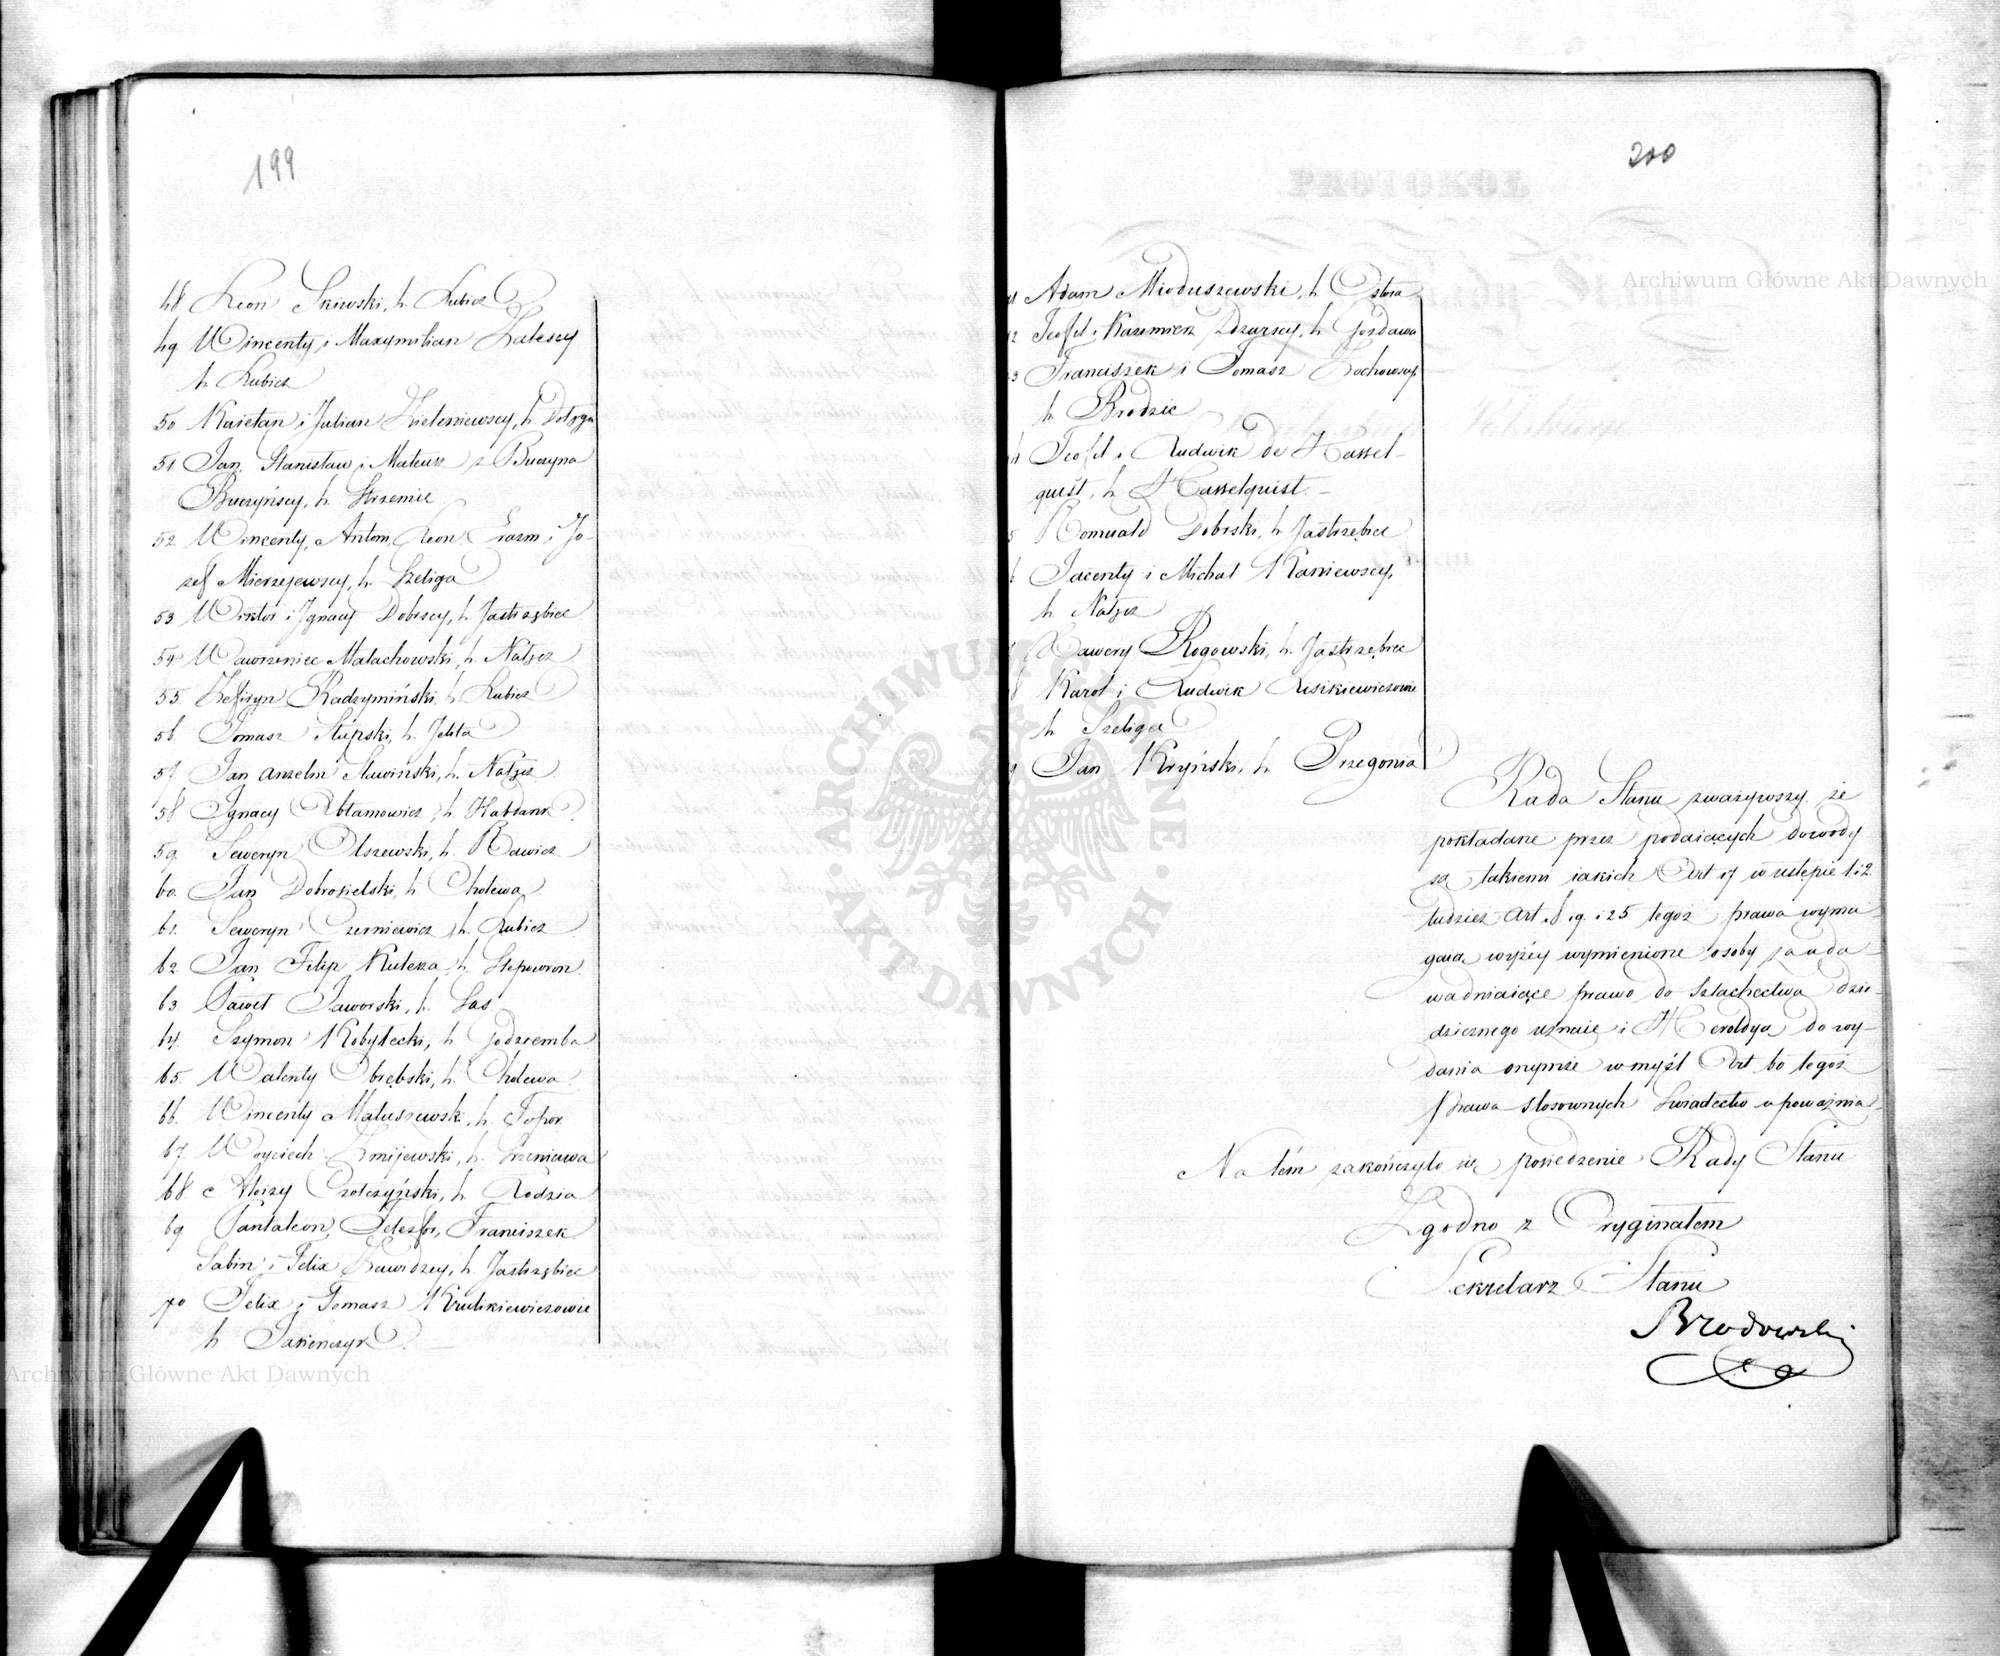 199
48 Leon Skiwski, h. Lubicz
49 Wincenty i Maxymilian Zalescy
h. Lubicz
50 Kaietan i Julian Zieleniewscy, h. Dołęga
51 Jan, Stanisław i Mateusz z Buczyna
Buczyńscy, h. Strzemie
52 Wincenty, Antoni, Leon, Erazm i Jó-
zef Mierzejewscy, h. Szeliga
53 Wiktor i Ignacy Dobrscy, h. Jastrzębiec
54 Wawrzeniec Małachowski, h. Nałęcz
55. Zefiryn Radzymiński, h. Lubicz
56. Tomasz Słupski, h. Jelita
57 Jan Anzelm Sławiński, h. Nałęcz
58 Ignacy Abłamowicz, h. Habdank
59. Seweryn Olszewski, h. Rawicz
60. Jan Dobrosielski, h. Cholewa
61. Seweryn Czerniewicz, h. Lubicz
62. Jan Filip Kulesza, h. Ślepowron
63 Paweł Jaworski, h. Sas
64. Szymon Kobyłecki, h. Godziemba
65. Walenty Obrębski, h. Cholewa
66. Wincenty Matuszewski, h. Topor
67. Woyciech Żmijewski, h. Szreniawa
68. Aloizy Czołczyński, h. Rodzia
69 Pantaleon, Telesfor, Franciszek
Sabin i Felix Zawidzcy, h. Jastrzębiec
70 Felix i Tomasz Krulikiewiczowie
h. Jasieńczyk
200
PROTOKOŁ
Adam Mioduszewski, h. Ostoia
Teofil i Kazimierz Zdzarscy, h. Gozdawa
Franciszek i Tomasz Żochowscy
h. Brodzic
Teofil i Ludwik de Hassel-
quist, h. Hasselquist.
Romuald Dobrski, h. Jastrzębiec
Jacenty i Michał Kaniewscy,
h. Nałęcz
Xawery Rogowski, h. Jastrzębiec
Karol i Ludwik Lisikiewiczowie
h. Szeliga
Jan Kryński, h. Przegonia
Rada Stanu zważywszy, że
pokładane przez podaiących dowody
są takiemi iakich Art 17 w ustępie 1 i 2
tudzież Art. 8. 9. i 25 tegoż prawa wyma-
gaią wyżéy wymienione osoby za uda-
wadniaiące prawo do szlachectwa dzie-
dzicznego uznaie i Heroldyą do wy-
dania onymże w myśl Art. 60 tegoż
Prawa stosownych świadectw upoważnia.
Na tém zakończyło się posiedzenie Rady Stanu
Zgodno z Oryginałem
Sekretarz Stanu
Brodowski
Archiwum Główne Akt Dawnych
Archiwum Główne Akt Dawnych
ARCHIWUM GŁÓWNE AKT DAWNYCH